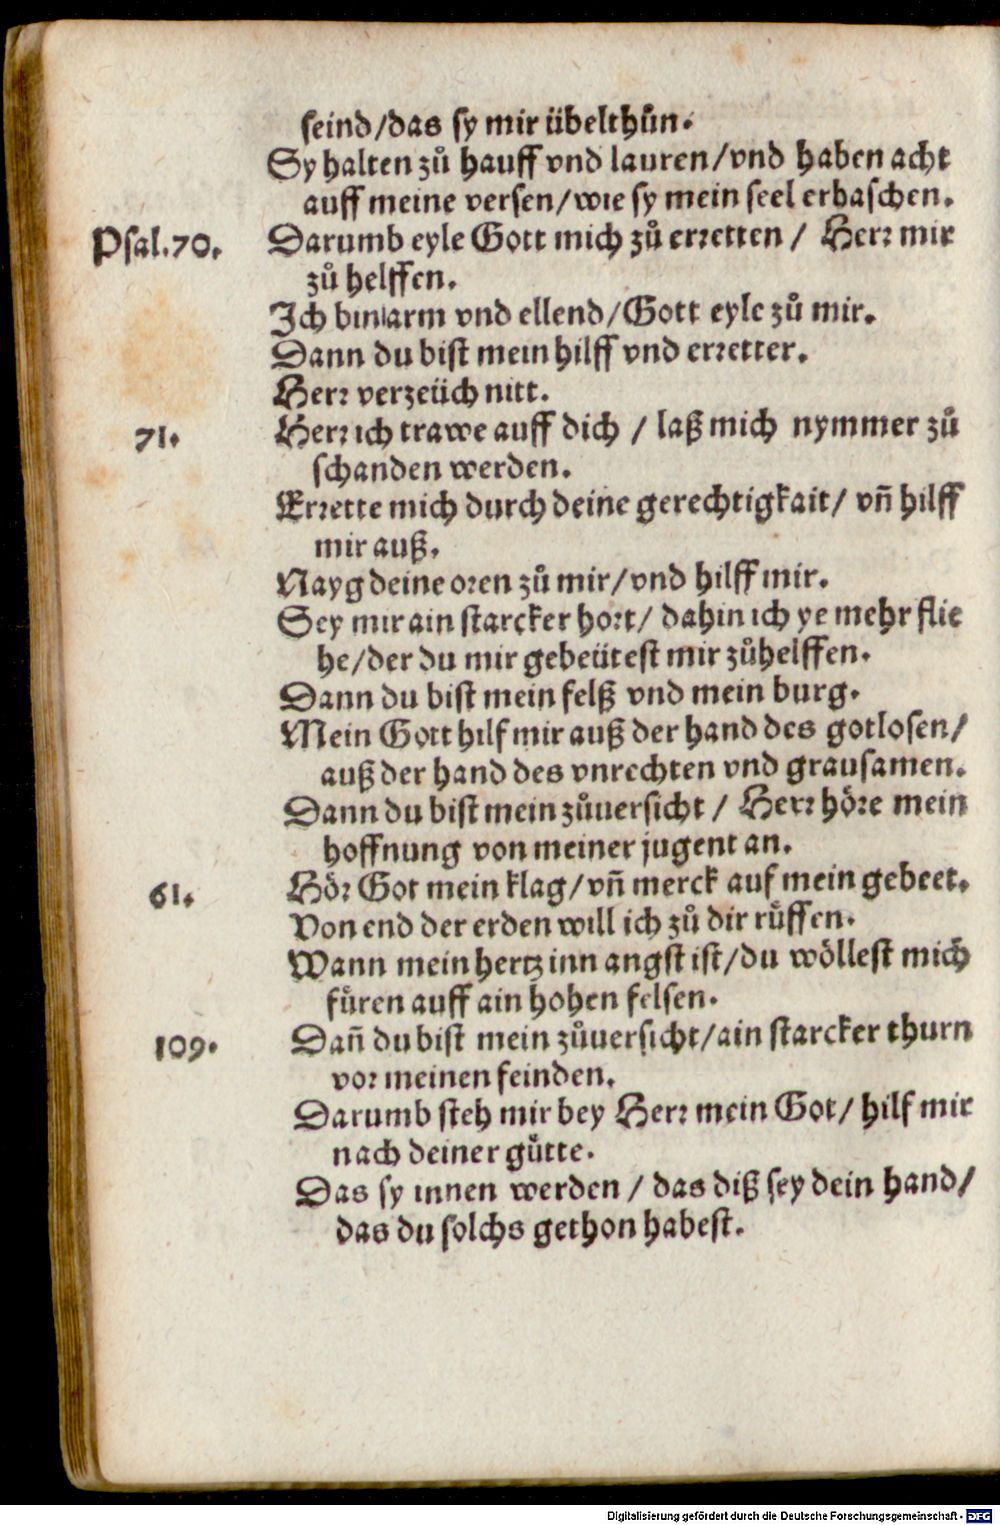 seind/das sy mir übelthůn.
Sy halten zů hauff vnd lauren/vnd haben acht
auff meine versen/wie sy mein seel erhaschen.
Psal.70. Darumb eyle Gott mich zů erretten / Herr mir
zů helffen.
Ich bin arm vnd ellend/Gott eyle zů mir.
Dann du bist mein hilff vnd erretter.
Herr verzeüch nitt.
71. Herr ich trawe auff dich / laß mich nymmer zů
schanden werden.
Errette mich durch deine gerechtigkait/ vñ hilff
mir auß.
Nayg deine oren zů mir/vnd hilff mir.
Sey mir ain starcker hort/ dahin ich ye mehr flie
he/der du mir gebeütest mir zůhelffen.
Dann du bist mein felß vnd mein burg.
Mein Gott hilf mir auß der hand des gotlosen/
auß der hand des vnrechten vnd grausamen.
Dann du bist mein zůuersicht / Herr höre mein
hoffnung von meiner jugent an.
61. Hör Got mein klag/vñ merck auf mein gebeet.
Von end der erden will ich zů dir růffen.
Wann mein hertz inn angst ist/du wöllest mich
fůren auff ain hohen felsen.
109. Dañ du bist mein zůuersicht/ain starcker thurn
vor meinen feinden.
Darumb steh mir bey Herr mein Got/ hilf mir
nach deiner gůtte.
Das sy innen werden / das diß sey dein hand/
das du solchs gethon habest.
Digitalisierung gefördert durch die Deutsche Forschungsgemeinschaft - DFG